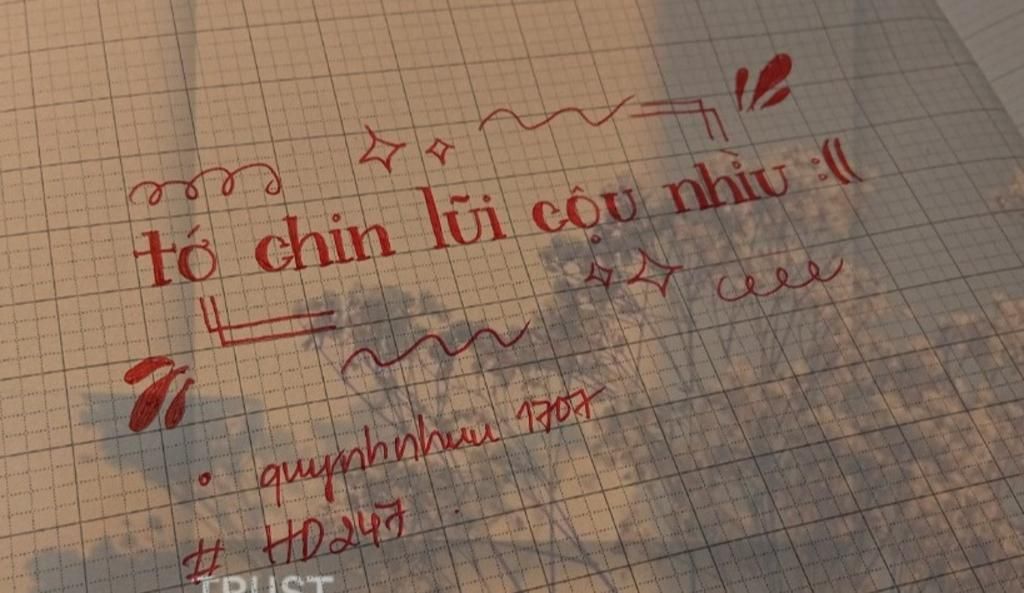 tớ chin lũi cộu nhìu :((
• quynhnhuu 1707
# HD247
TRUST